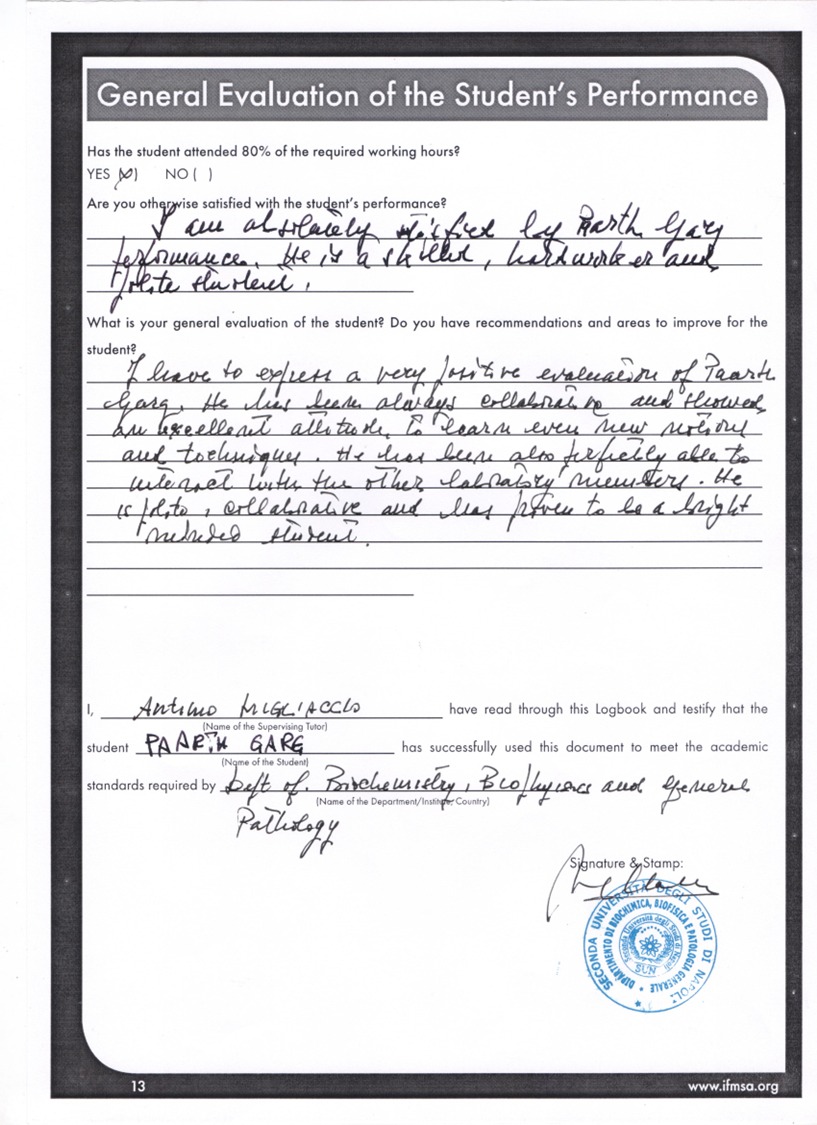 General Evaluation of the Student's Performance
Has the student attended 80% of the required working hours?
YES (X) NO ( )
Are you otherwise satisfied with the student's performance?
I am absolutely satisfied by Paarth Garg
performance. He is a skilled, hardworker and
polite student.
What is your general evaluation of the student? Do you have recommendations and areas to improve for the
student?
I have to express a very positive evaluation of Paarth
Garg. He has been always collaborative and showed
an excellent attitude to learn even new notions
and techniques. He has been also perfectly able to
interact with the other laboratory members. He
is polite, collaborative and has proven to be a bright
minded student.
I, Antimo MIGLIACCIO have read through this Logbook and testify that the
(Name of the Supervising Tutor)
student PAARTH GARG has successfully used this document to meet the academic
(Name of the Student)
standards required by Dept of. Biochemistry, Biophysics and General
(Name of the Department/Institute, Country)
Pathology
Signature & Stamp:
SECONDA UNIVERSITÀ DEGLI STUDI DI NAPOLI
DIPARTIMENTO DI BIOCHIMICA, BIOFISICA E PATOLOGIA GENERALE
Seconda Università degli Studi di Napoli
SUN
13
www.ifmsa.org